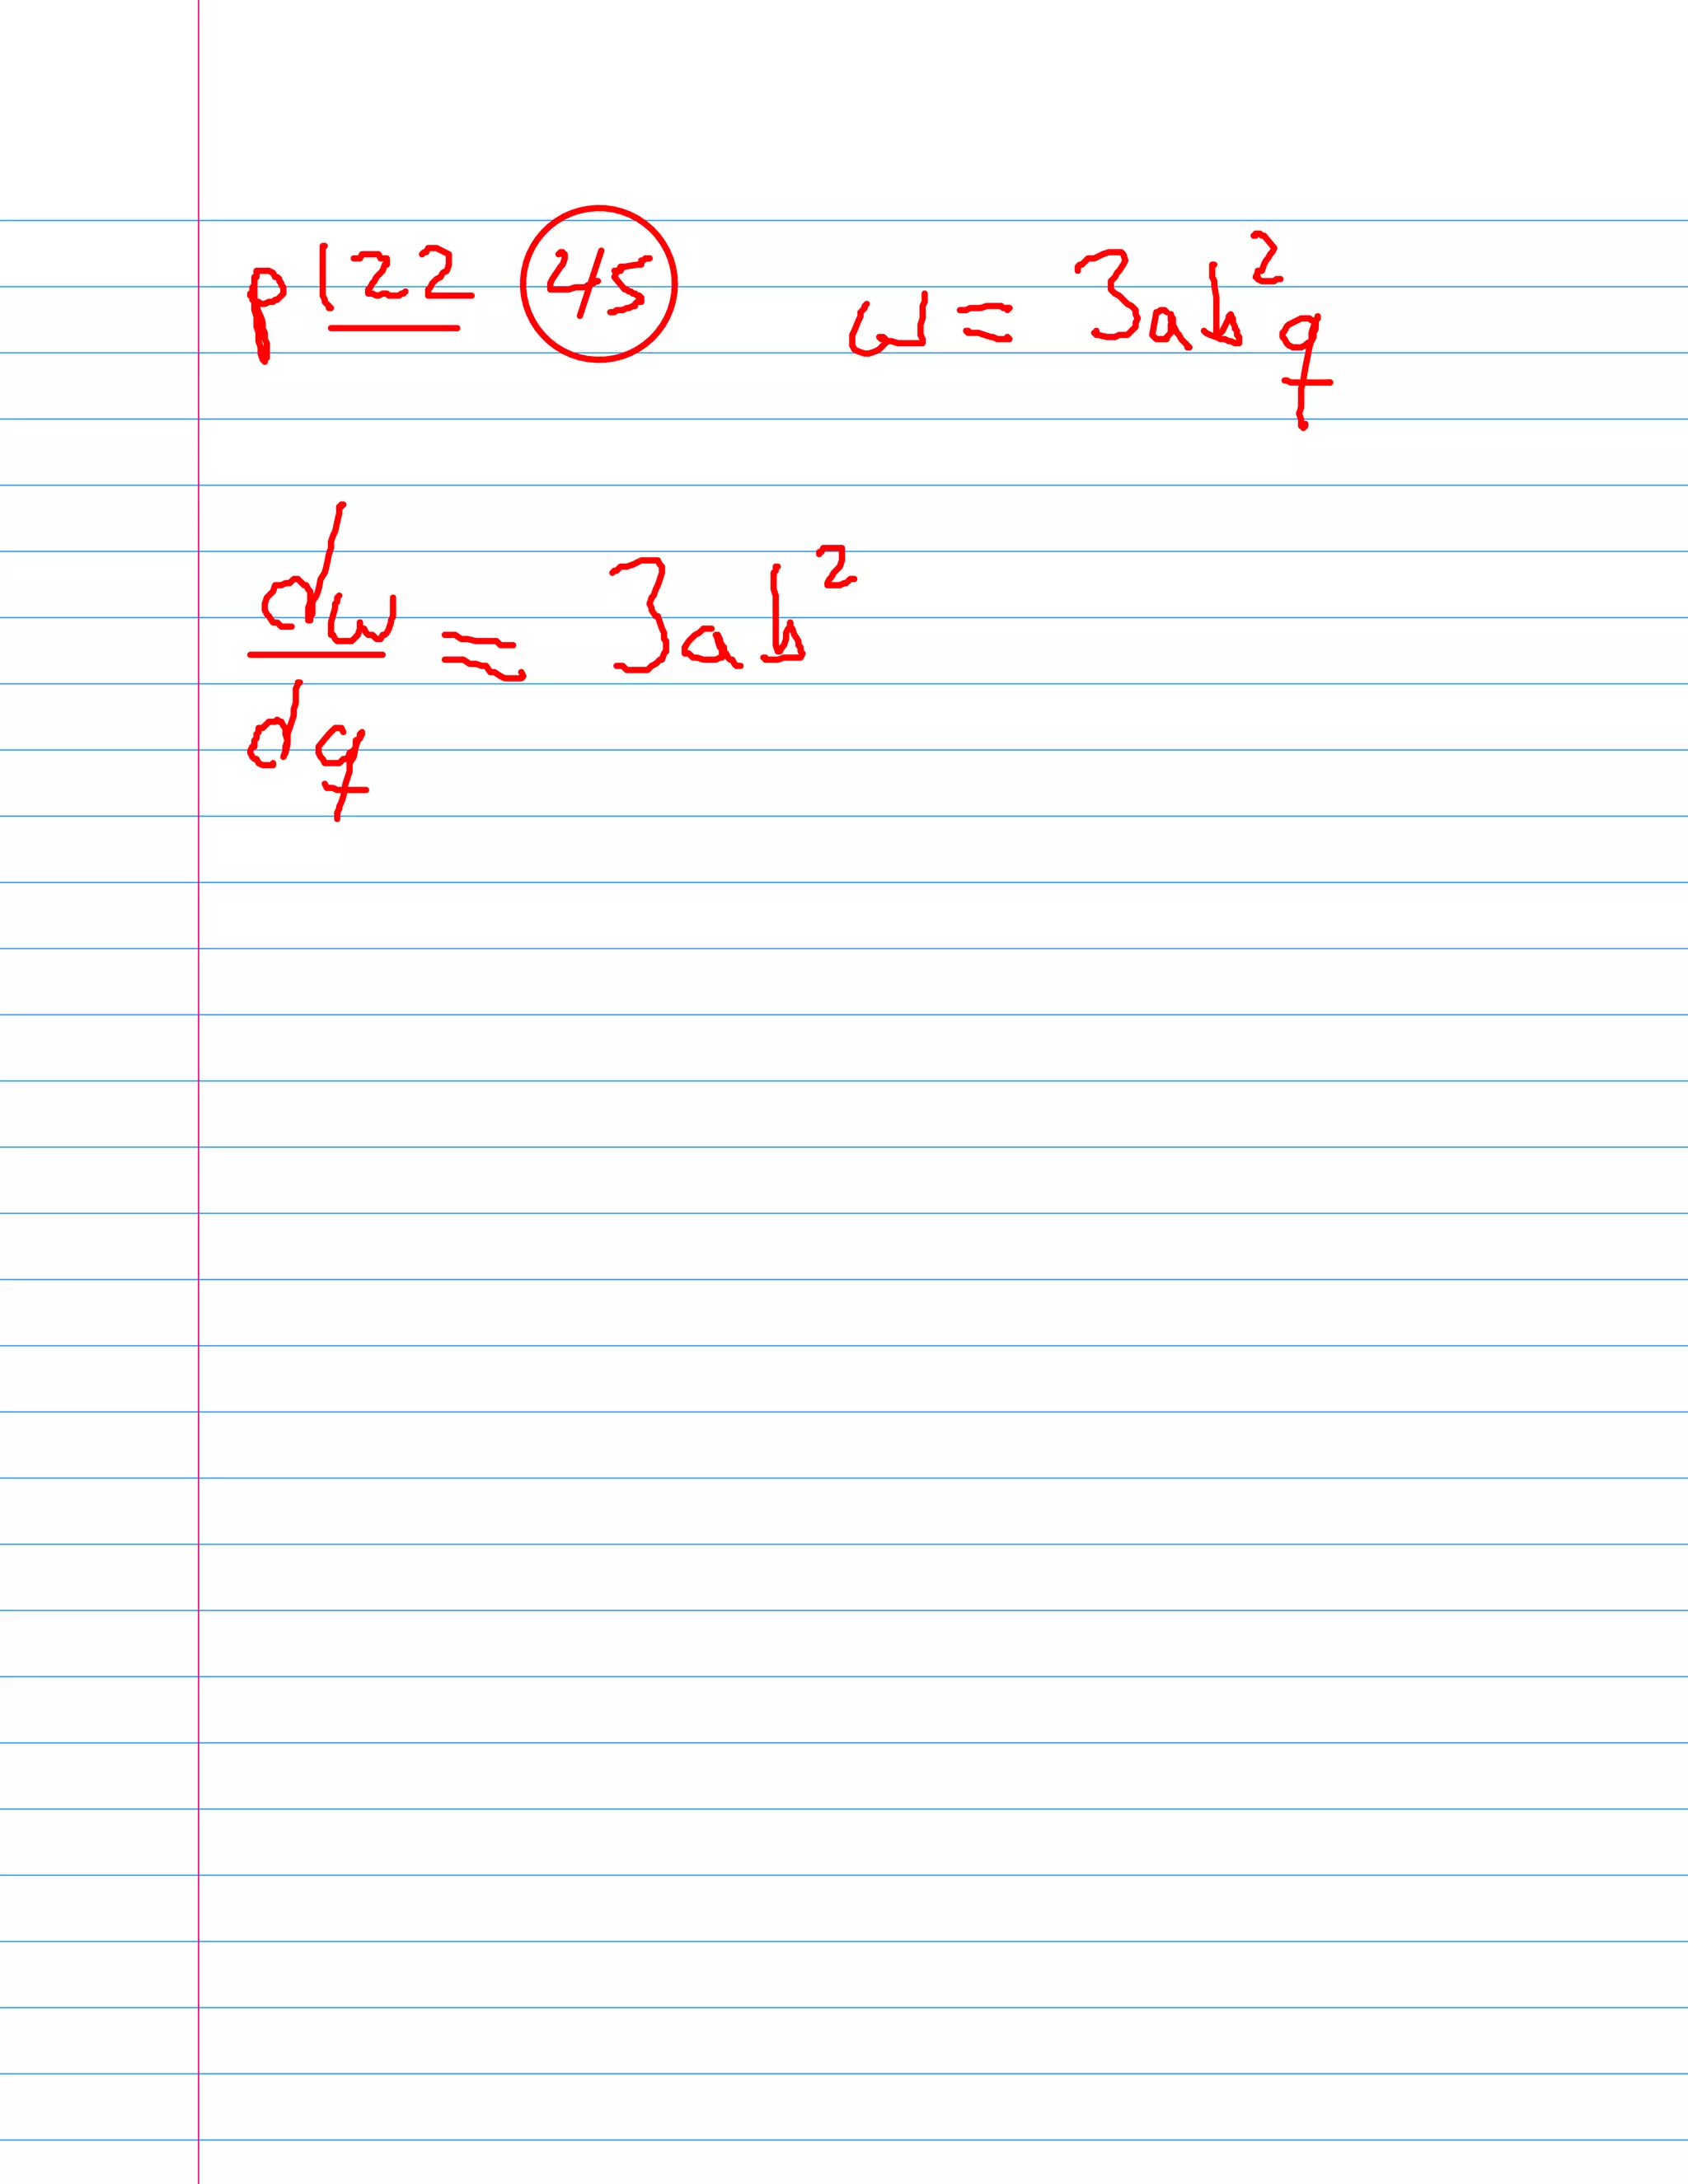 p122 45 w = 3ab²q
dw/dq = 3ab²